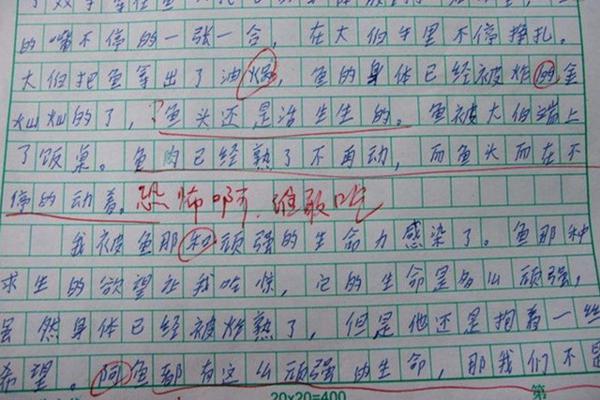 的嘴不停的一张一合，在大伯手里不停挣扎。
大伯把鱼等出了油锅，鱼的身体已经被炸的金
灿灿的了，鱼头还是活生生的。鱼被大伯端上
了饭桌。鱼肉已经熟了不再动，而鱼头而在不
停的动着。恐怖啊，谁敢吃
我被鱼那和顽强的生命力感染了。鱼那种
求生的欲望让我吃惊，它的生命是多么顽强，
虽然身体已经被炸熟了，但是他还是抱着一丝
希望。阿鱼都有这么顽强的生命，那我们不是
20×20=400 第